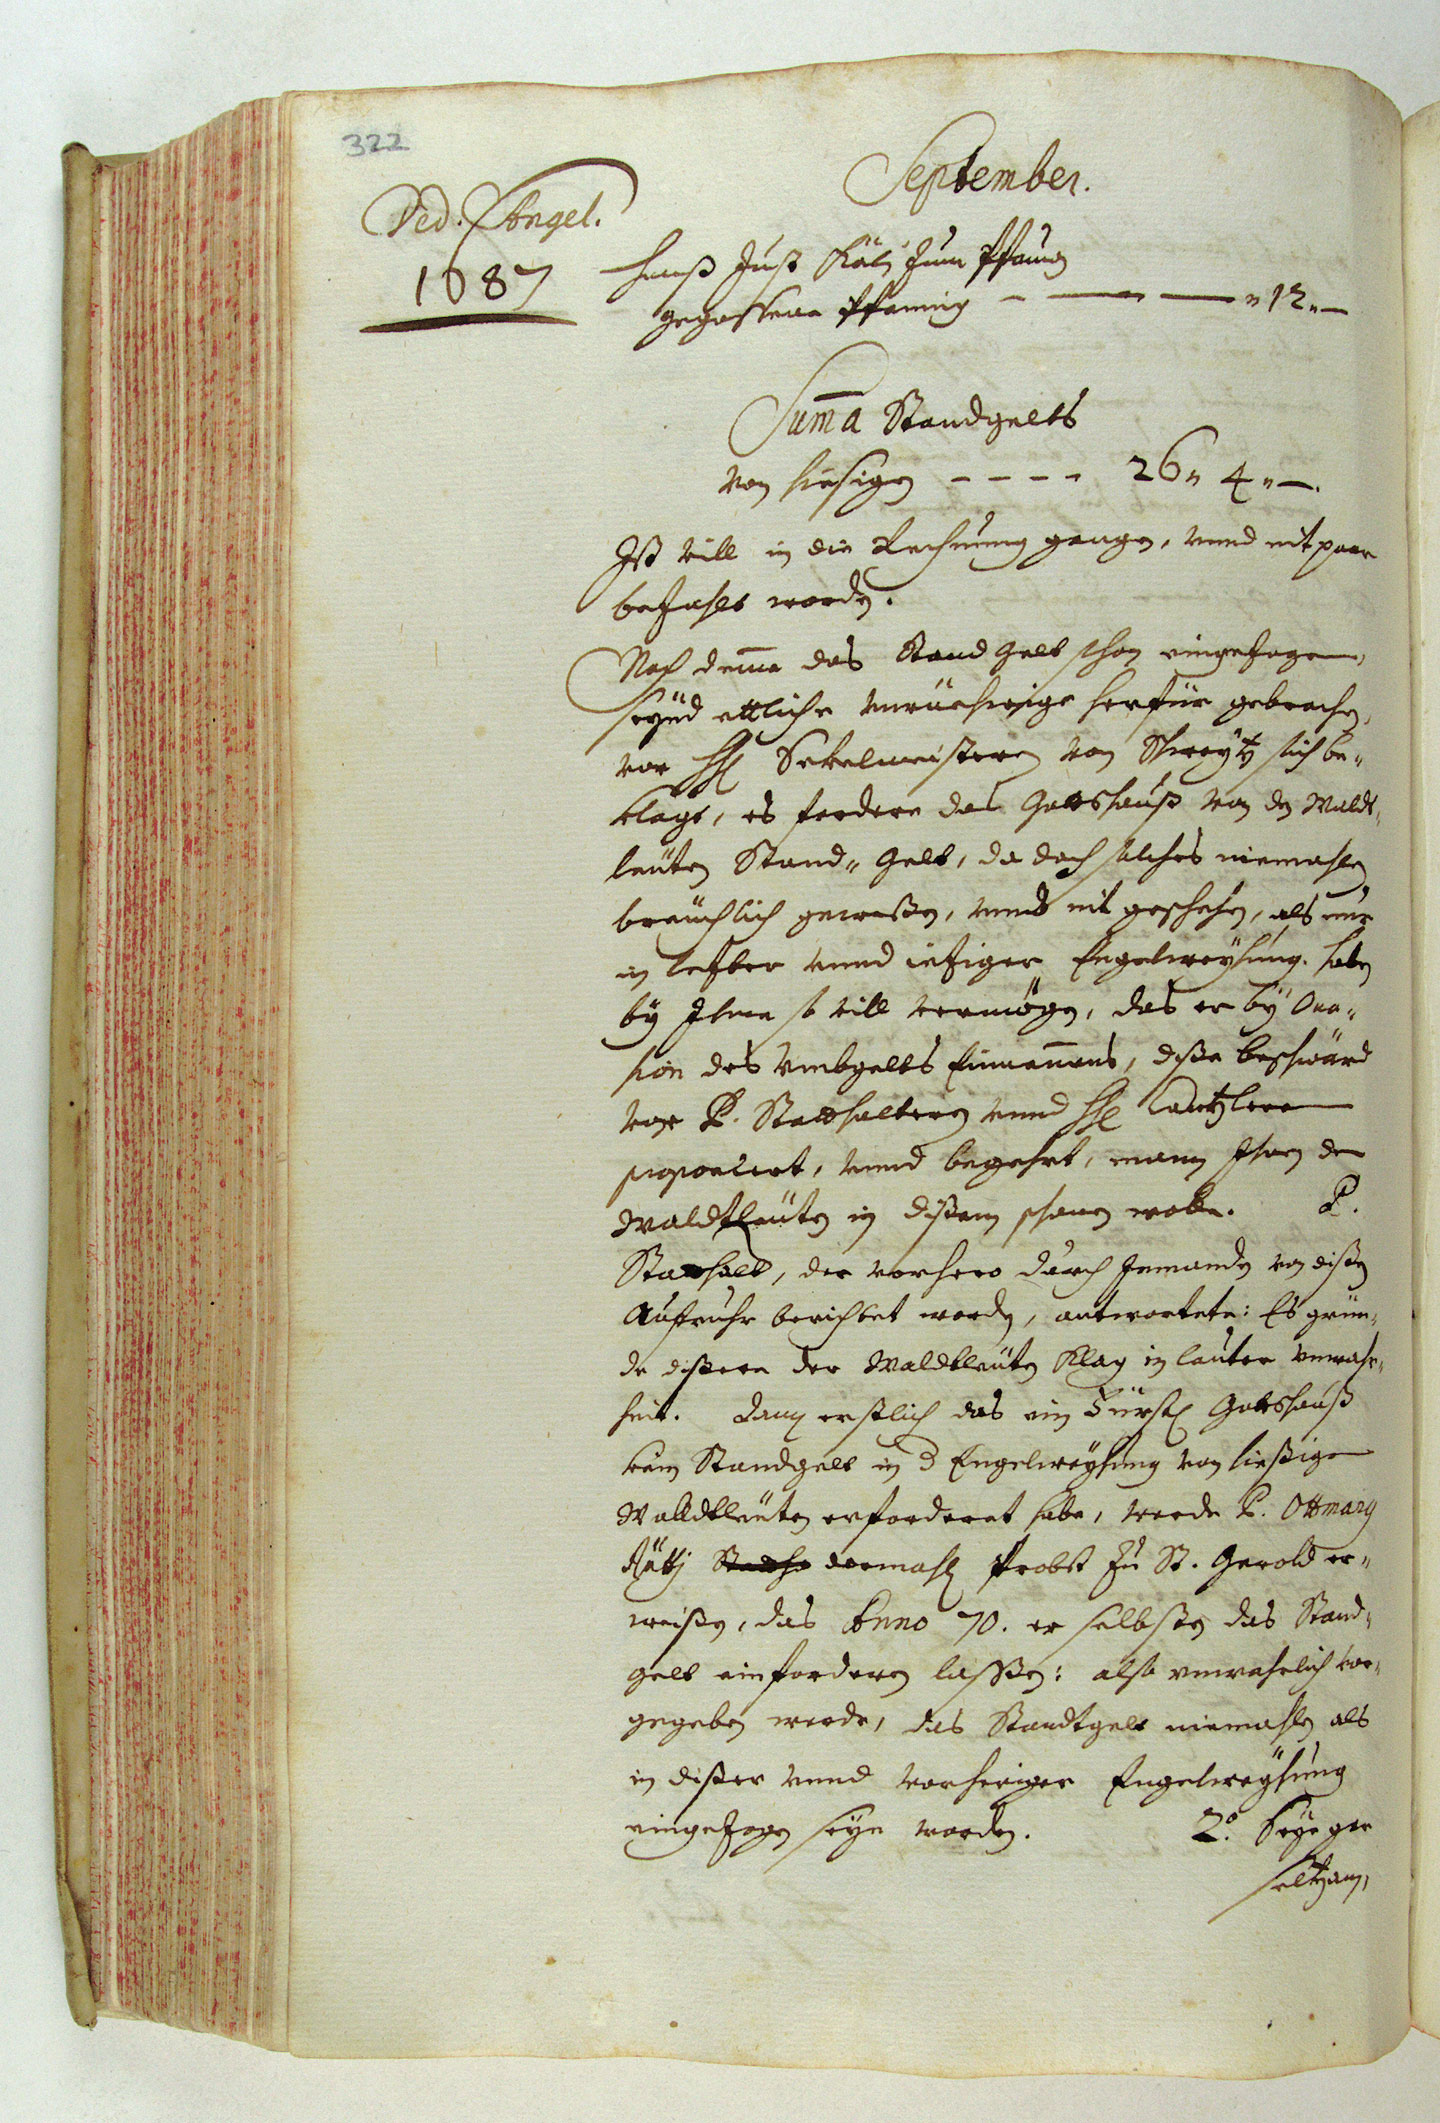 322
September.
Ded. Angel.
1687
Hanß Just Käli zum Pfauwen
gegossene Pfanning - — — " 12 " —
Suma Standgelts
von hiesigen - - - - 26 " 4 " —.
Ist vill in die Rechnung gangen, vnnd nit paar
bezahlt worden.
Nach deme das Stand Gelt schon eingezogen,
seynd ettliche vnrüehwige herfür gebrochen,
vor HH Sekelmeisteren von Schweytz sich be-
klagt, es fordere das Gottshauß von den Waldt-
leüten Stand-Gelt, da doch solches niemahlen
breüchlich geweßen, vnnd nit geschehen, als nur
in letster vnnd ietziger Engelweyhung. haben
by Ihme so vill vermögen, das er by Occa-
sion des Vmbgelts Einnemens, diße beschwärd
vor P. Statthalteren vnnd HH Cantzlere
proponiert, vnnd begehrt, mann Ihnen den
Waldtleüten in dißem schonen wolle. P.
Statthalt, der vorhero durch Jemanden von dißen
Aufruhr berichtet worden, antwortete: Es grün-
de dißere der Waldtleüten Klag in lauter vnwahr-
heit. Dann erstlich das ein Fürstl Gottshauß
kein Standgelt in d Engelweyhung von hießigen
Walldtleüten erforderet habe, werde P. Ottmary
Rütti dermahl Probst zu St. Gerold er-
weißen, das Anno 70. er selbsten das Stand-
gelt einforderen lassen: also vnwahrlich vor-
gegeben werde, das Standtgelt niemahlen als
in dißer vnnd vorheriger Engelweyhung
eingezogen seye worden. 2.º Seye gar
seltzam,